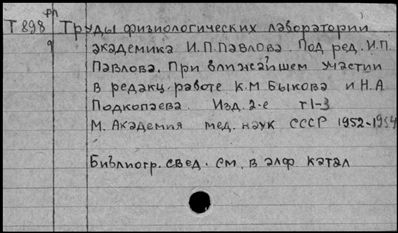 рп
Т 898 Труды физиологических лаборатории
академика И.П.Павлова. Под ред. И.П.
Павлова. При ближайшем участии
в редакц. работе К.М Быкова и Н.А
Подкопаева. Изд. 2-е т 1-3
М. Академия мед. наук СССР 1952-1954
Библиогр. свед. см. в алф катал